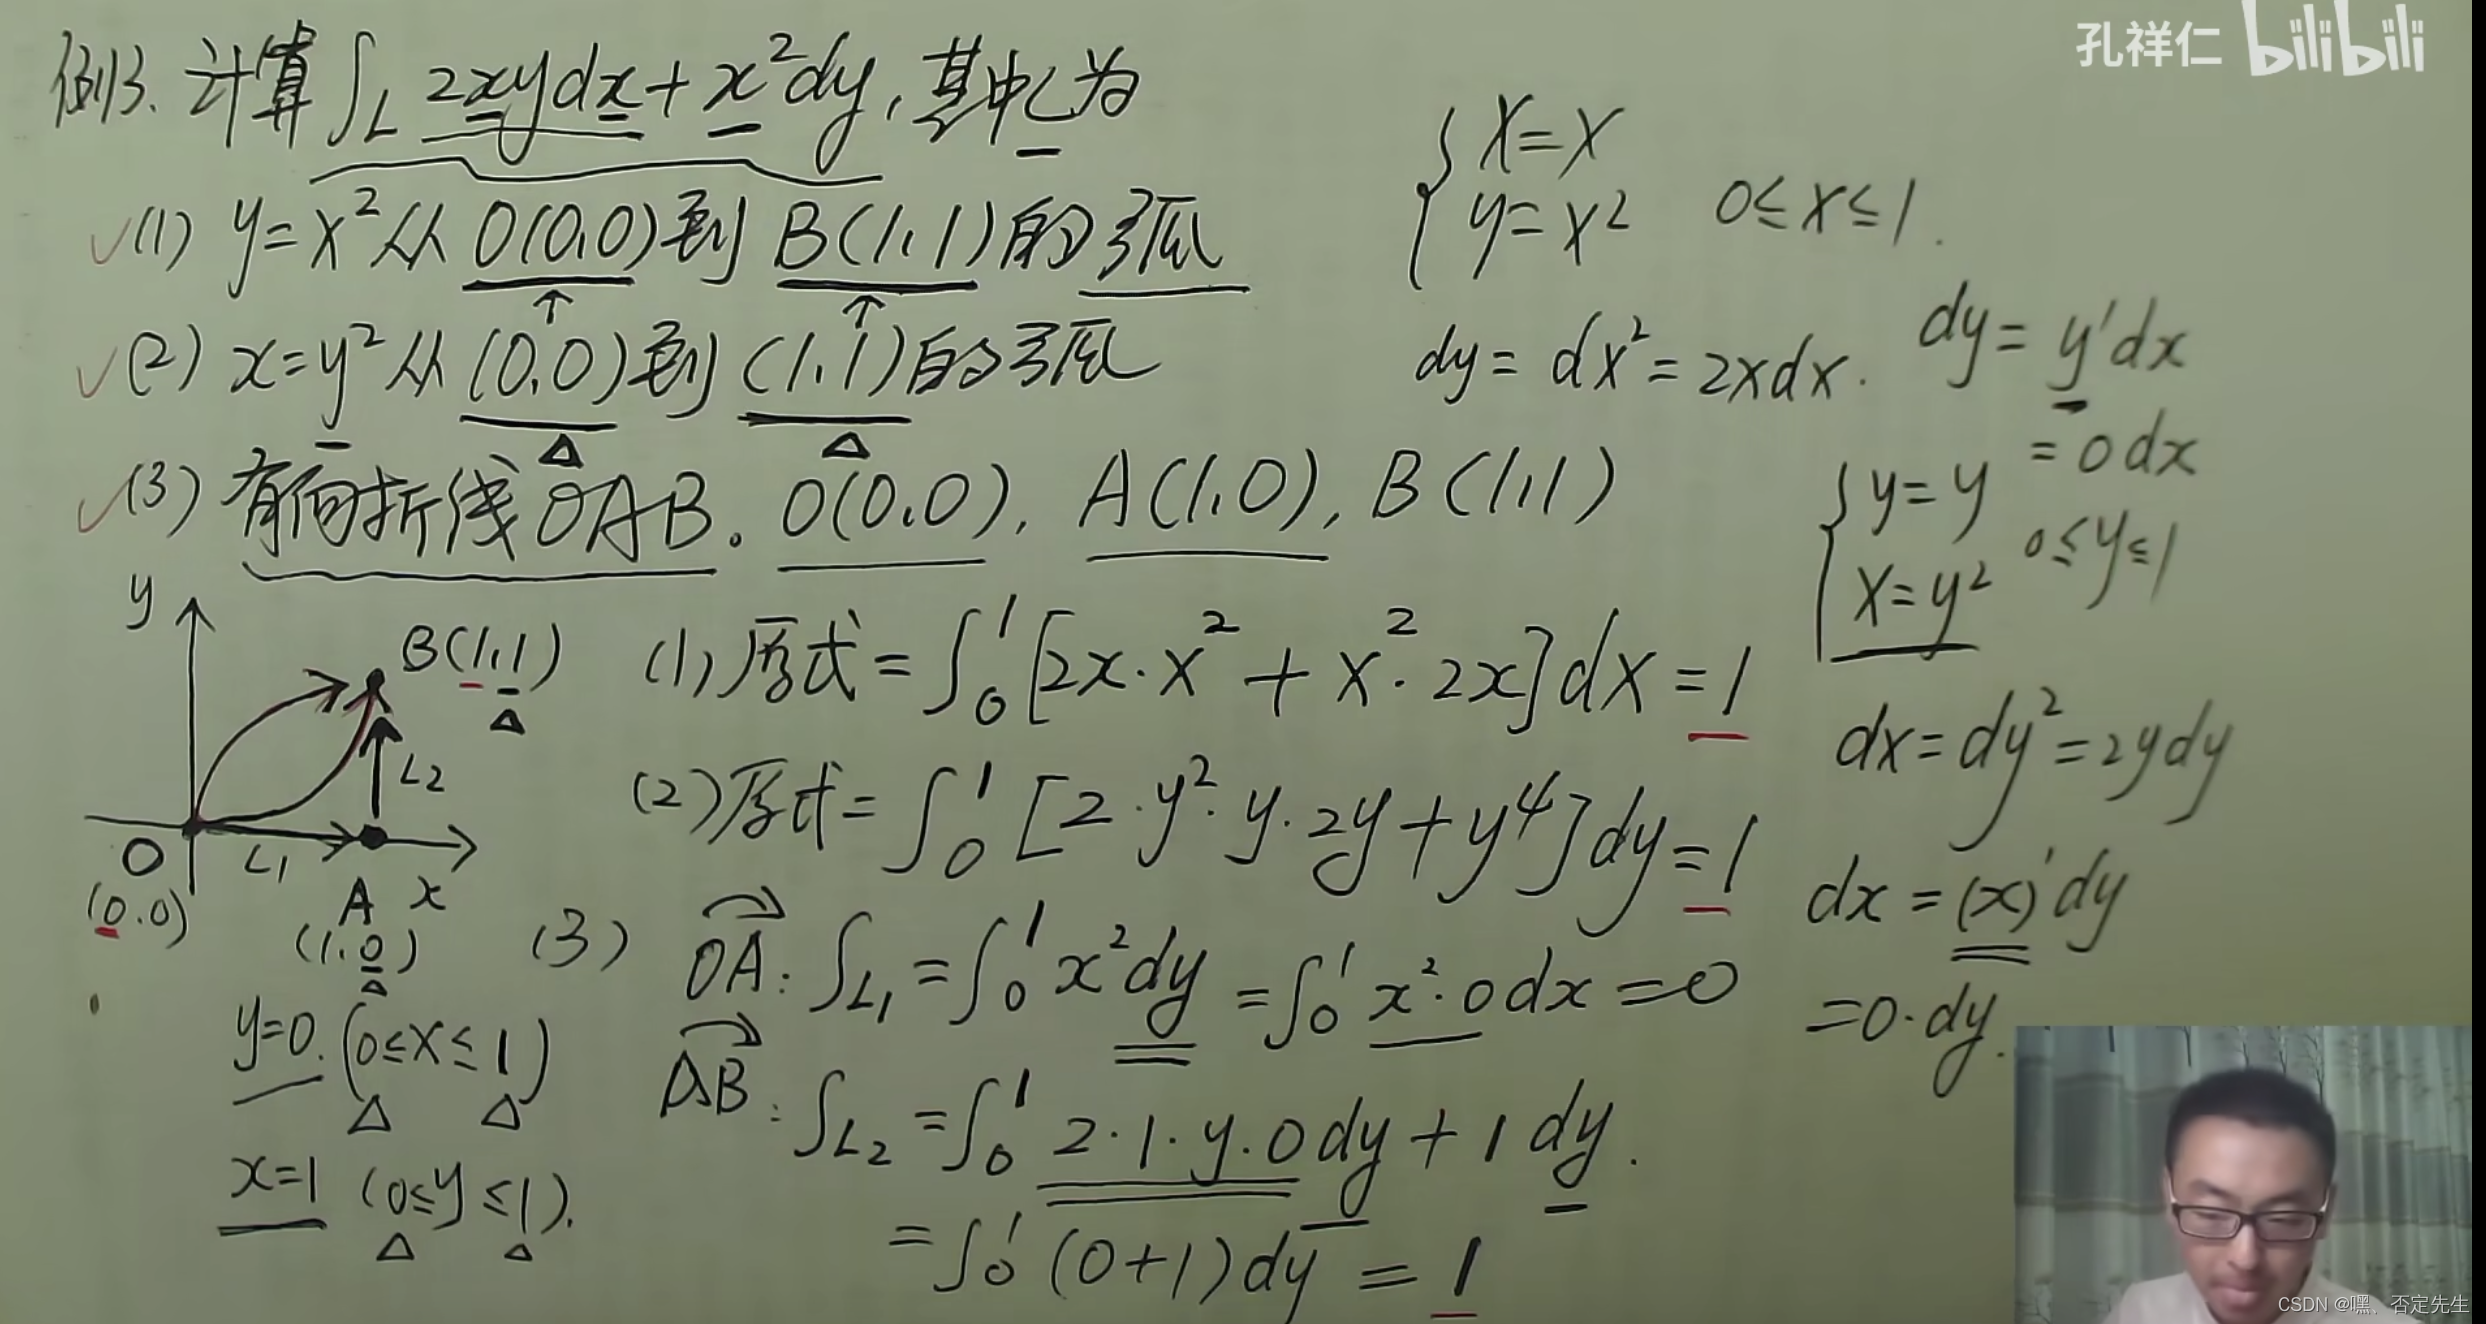 孔祥仁 bilibili
例3. 计算∫_L 2xydx+x²dy, 其中L为
(1) y=x²从O(0,0)到B(1,1)的弧
(2) x=y²从(0,0)到(1,1)的弧
(3) 有向折线OAB。O(0,0), A(1,0), B(1,1)
{ x=x
y=x² 0≤x≤1.
dy=dx²=2xdx.
dy=y'dx
=0dx
{ y=y
x=y² 0≤y≤1
dx=dy²=2ydy
dx=(x)'dy
=0·dy.
y
B(1,1)
L2
O
L1
(0.0)
A x
(1.0)
y=0. (0≤x≤1)
x=1 (0≤y≤1).
(1) 原式=∫₀¹[2x·x²+x²·2x]dx=1
(2) 原式=∫₀¹[2·y²·y·2y+y⁴]dy=1
(3) OA: ∫_L1=∫₀¹x²dy=∫₀¹x²·0dx=0
AB: ∫_L2=∫₀¹2·1·y·0dy+1dy.
=∫₀¹(0+1)dy=1
CSDN @嘿、否定先生